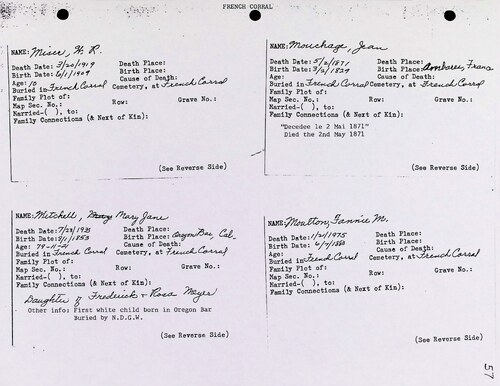 FRENCH CORRAL
NAME: Miser, H. R.
Death Date: 3/20/1919 Death Place:
Birth Date: 6/1/1909 Birth Place:
Age: 10 Cause of Death:
Buried in French Corral Cemetery, at French Corral
Family Plot of:
Map Sec. No.: Row: Grave No.:
Married-( ), to:
Family Connections (& Next of Kin):
(See Reverse Side)
NAME: Mouchage, Jean
Death Date: 5/2/1871 Death Place:
Birth Date: 3/2/1829 Birth Place:
Age: Cause of Death:
Buried in French Corral Cemetery, at French Corral
Family Plot of:
Map Sec. No.: Row: Grave No.:
Married-( ), to:
Family Connections (& Next of Kin):
"Decedee le 2 Mai 1871"
Died the 2nd May 1871
(See Reverse Side)
NAME: Mitchell, Mary Jane
Death Date: 7/22/1933 Death Place:
Birth Date: 8/1/1853 Birth Place: Oregon Bar, Cal.
Age: 79-11-21 Cause of Death:
Buried in French Corral Cemetery, at French Corral
Family Plot of:
Map Sec. No.: Row: Grave No.:
Married-( ), to:
Family Connections (& Next of Kin):
Daughter of Frederick & Rosa Meyer
Other info: First white child born in Oregon Bar
Buried by N.D.G.W.
(See Reverse Side)
NAME: Moulton, Fannie M.
Death Date: 1/21/1975 Death Place:
Birth Date: 6/7/1880 Birth Place:
Age: Cause of Death:
Buried in French Corral Cemetery, at French Corral
Family Plot of:
Map Sec. No.: Row: Grave No.:
Married-( ), to:
Family Connections (& Next of Kin):
(See Reverse Side)
57